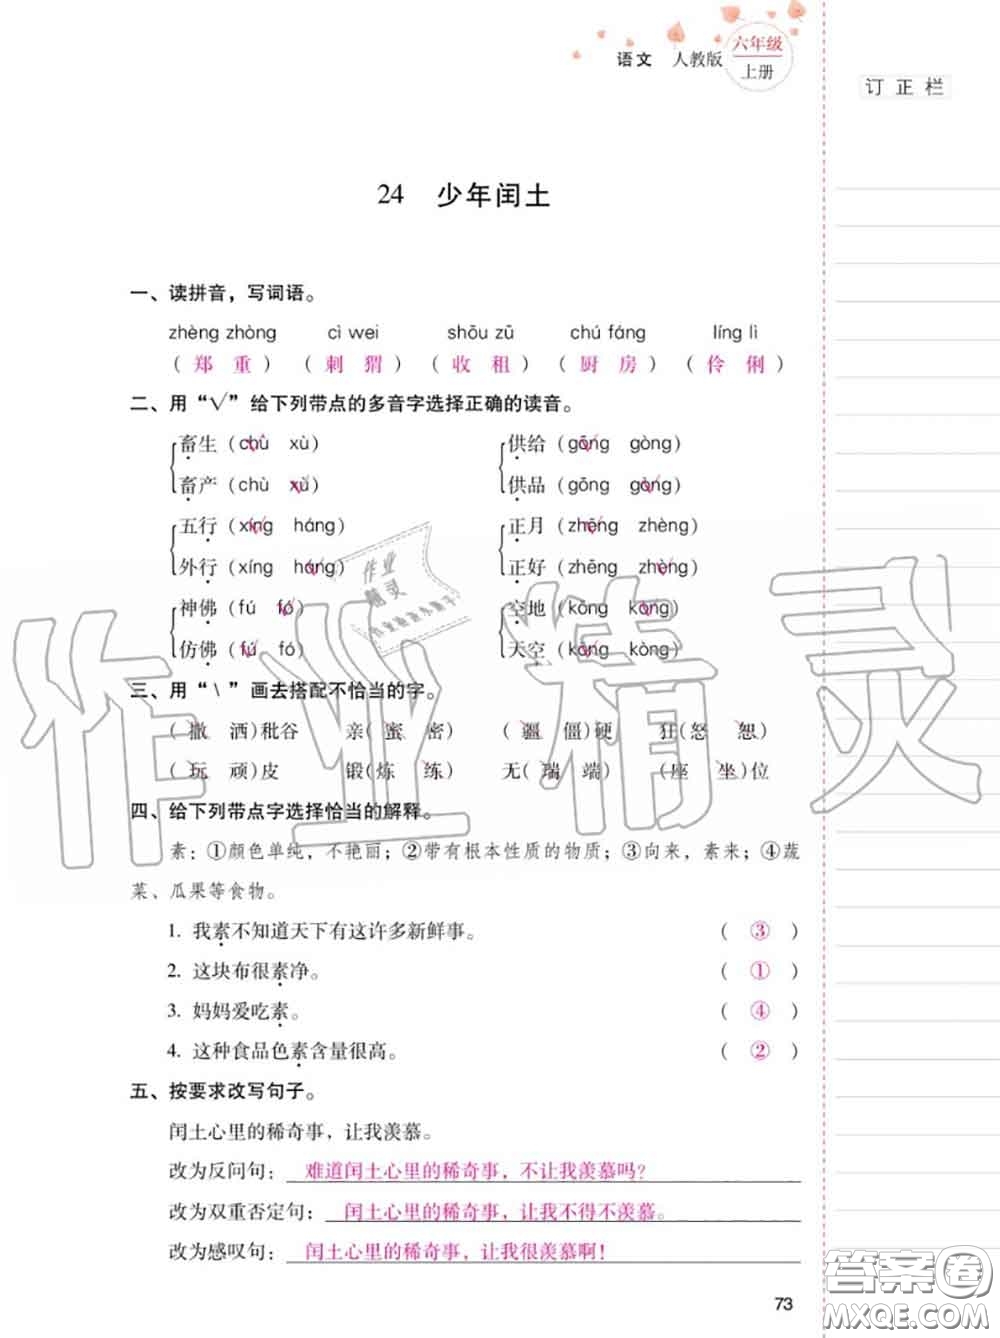 语文 人教版 六年级
上册
订 正 栏
24 少年闰土
一、读拼音，写词语。
zhèng zhòng cì wei shōu zū chú fáng líng lì
（ 郑 重 ）（ 刺 猬 ）（ 收 租 ）（ 厨 房 ）（ 伶 俐 ）
二、用“√”给下列带点的多音字选择正确的读音。
畜生（chù xù） 供给（gōng gòng）
畜产（chù xù） 供品（gōng gòng）
五行（xíng háng） 正月（zhēng zhèng）
外行（xíng háng） 正好（zhēng zhèng）
神佛（fú fó） 空地（kōng kòng）
仿佛（fú fó） 天空（kōng kòng）
三、用“\”画去搭配不恰当的字。
（ 撒 洒）秕谷 亲（蜜 密） （ 疆 僵）硬 狂（怒 恕）
（ 玩 顽）皮 锻（炼 练） 无（瑞 端） （座 坐）位
四、给下列带点字选择恰当的解释。
素：①颜色单纯，不艳丽；②带有根本性质的物质；③向来，素来；④蔬
菜、瓜果等食物。
1. 我素不知道天下有这许多新鲜事。 （ ③ ）
2. 这块布很素净。 （ ① ）
3. 妈妈爱吃素。 （ ④ ）
4. 这种食品色素含量很高。 （ ② ）
五、按要求改写句子。
闰土心里的稀奇事，让我羡慕。
改为反问句：难道闰土心里的稀奇事，不让我羡慕吗？
改为双重否定句：闰土心里的稀奇事，让我不得不羡慕。
改为感叹句：闰土心里的稀奇事，让我很羡慕啊！
73
作业精灵
作业
精灵
答案卷
MXQE.COM